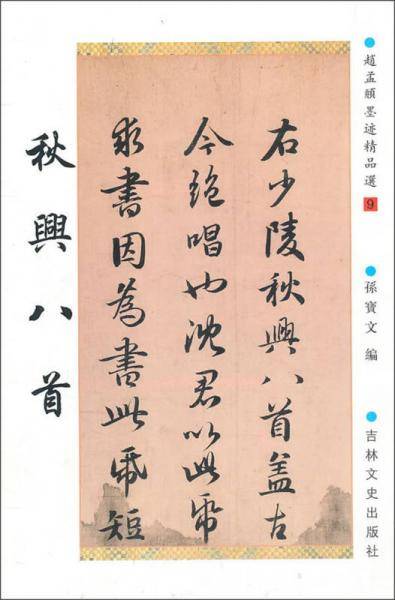 趙孟頫墨迹精品選 9
孫寶文 編
吉林文史出版社
右少陵秋興八首盖古
今絶唱也沈君以此帋
求書因為書此帋短
秋興八首